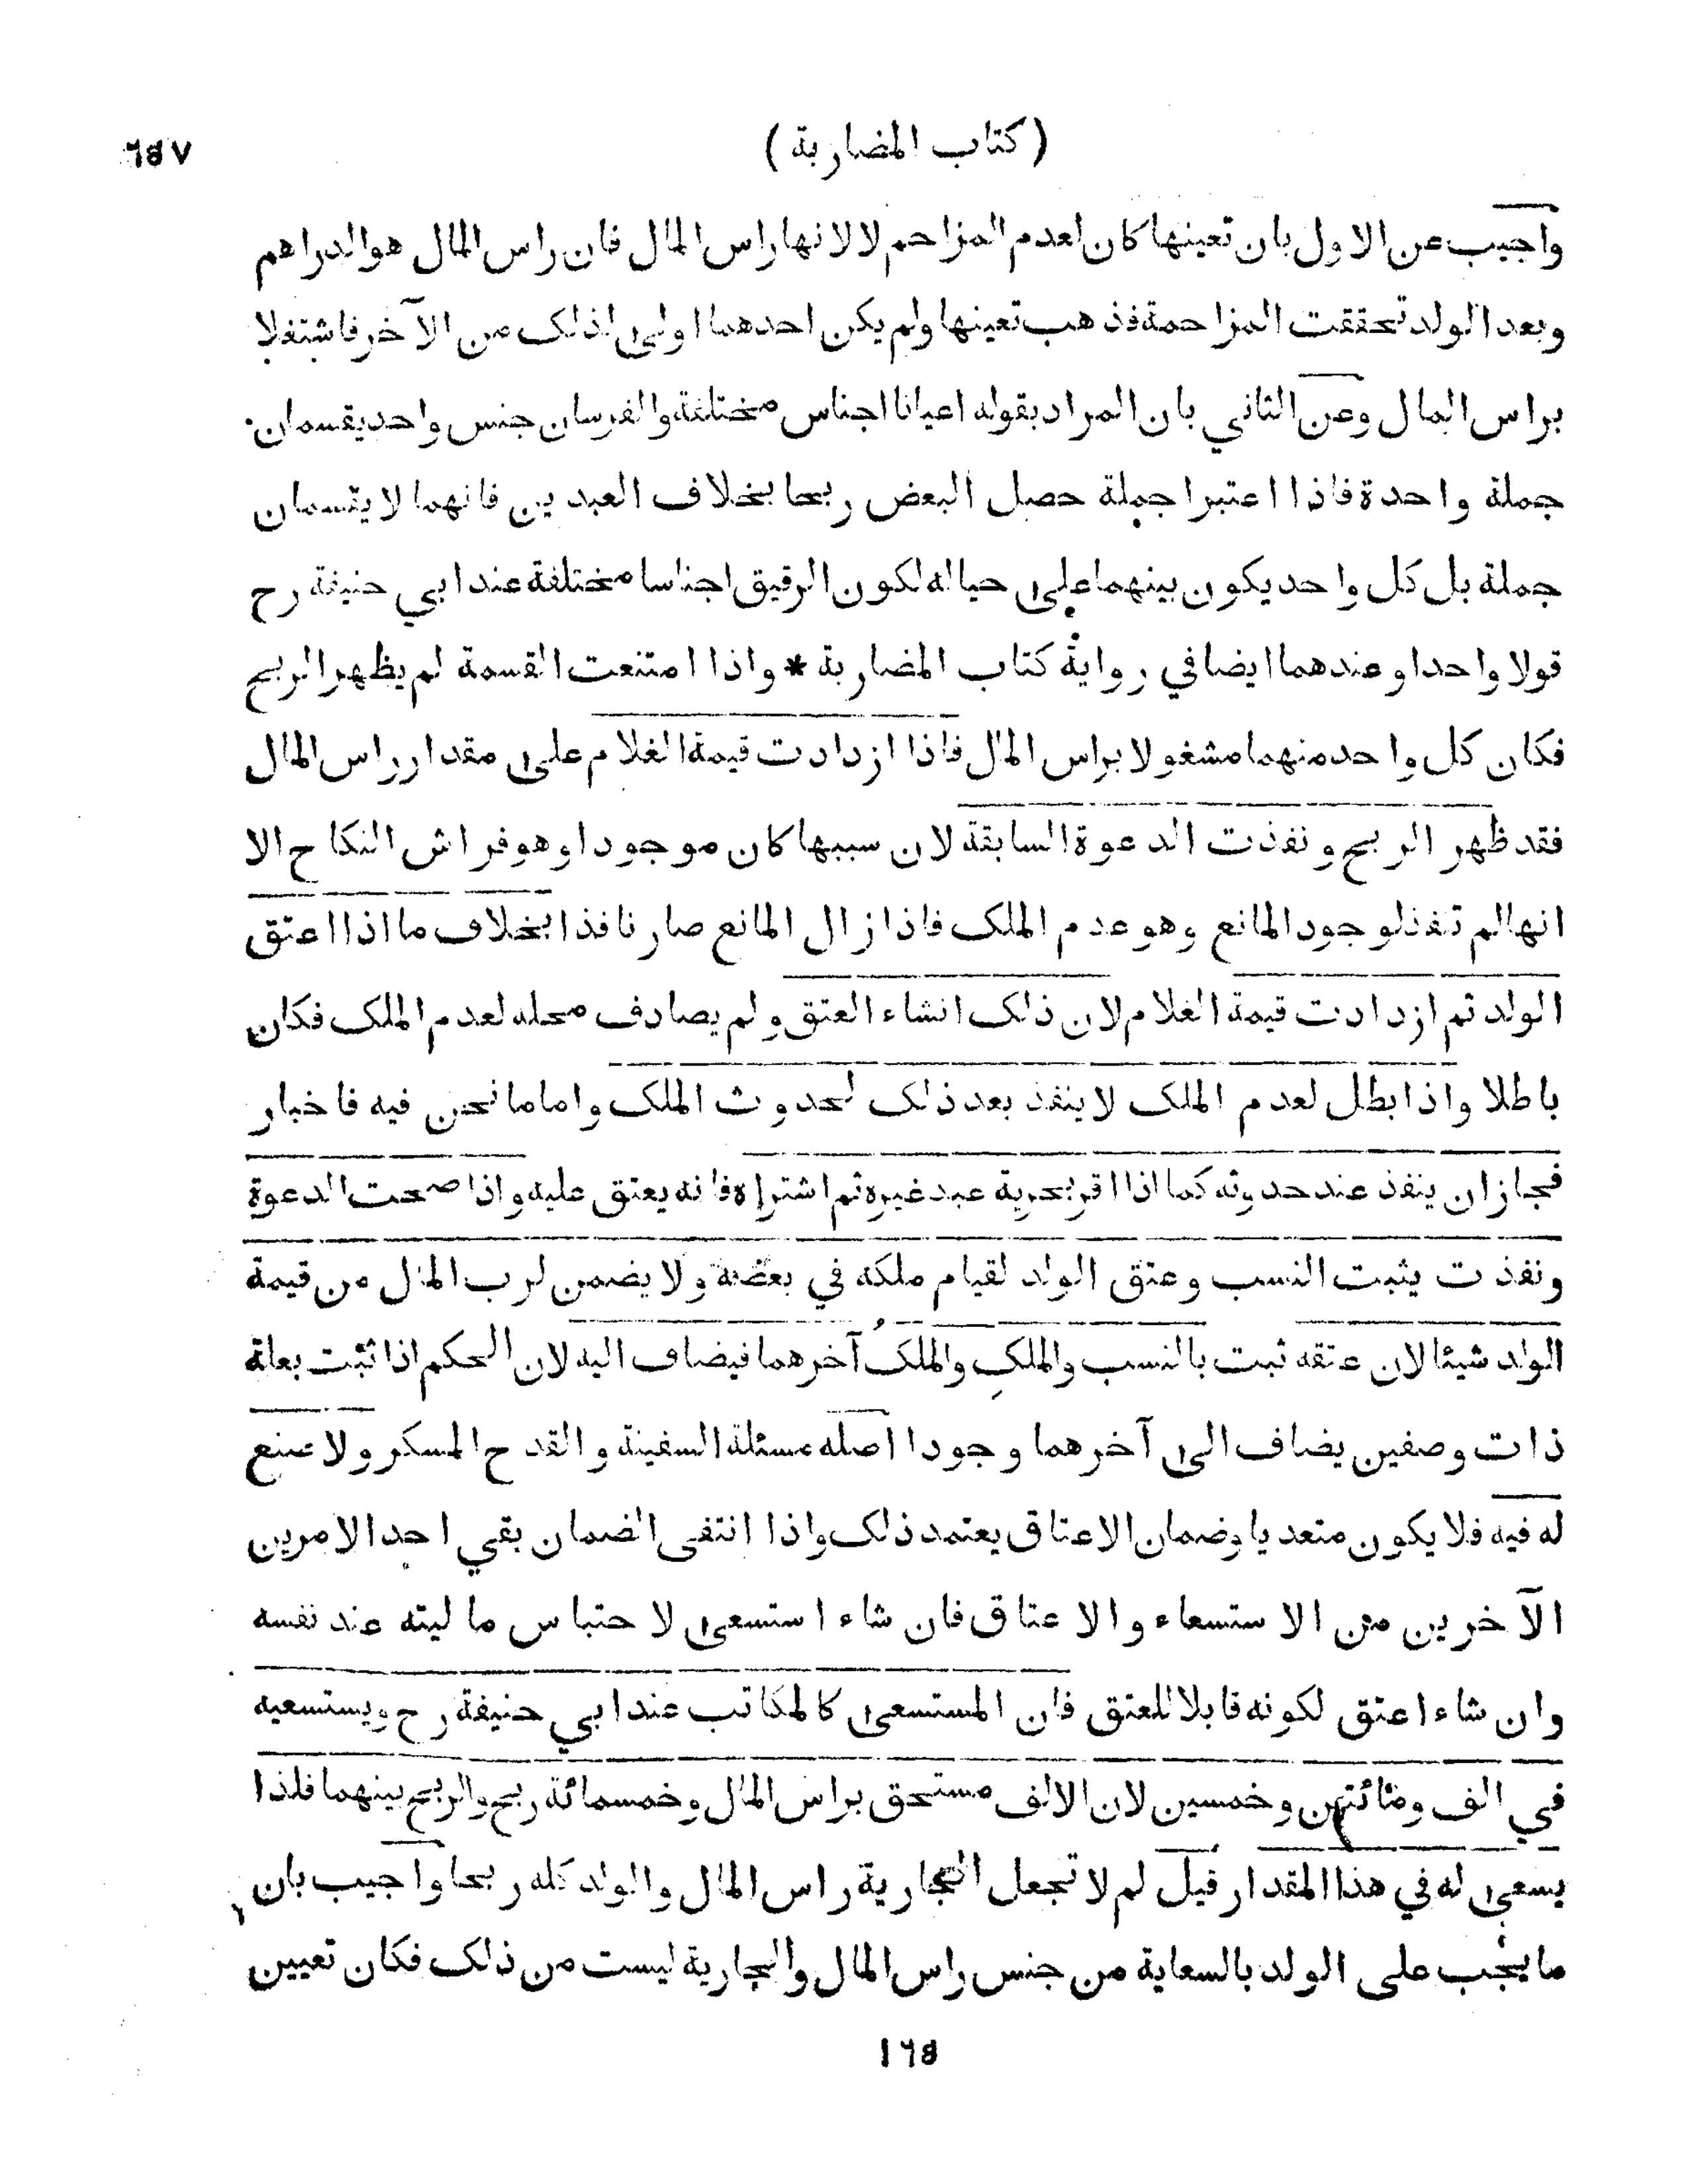 (كتاب المضاربة)
٦٥٧
واجيب عن الاول بان تعينها كان لعدم المزاحم لا لانها راس المال فان راس المال هو الدراهم
وبعد الولد تحققت المزاحمة فذهب تعينها ولم يكن احدهما اولى لذلك من الآخر فاشتغلا
براس المال وعن الثاني بان المراد بقوله اعيانا اجناس مختلفة والفرسان جنس واحد يقسمان
جملة واحدة فاذا اعتبرا جملة حصل البعض ربحا بخلاف العبدين فانهما لا يقسمان
جملة بل كل واحد يكون بينهما على حياله لكون الرقيق اجناسا مختلفة عند ابي حنيفة رح
قولا واحدا وعندهما ايضا في رواية كتاب المضاربة * واذا امتنعت القسمة لم يظهر الربح
فكان كل واحد منهما مشغولا براس المال فاذا ازدادت قيمة الغلام على مقدار راس المال
فقد ظهر الربح ونفذت الدعوة السابقة لان سببها كان موجودا وهو فراش النكاح الا
انها لم تنفذ لوجود المانع وهو عدم الملك فاذا زال المانع صار نافذا بخلاف ما اذا اعتق
الولد ثم ازدادت قيمة الغلام لان ذلك انشاء العتق ولم يصادف محله لعدم الملك فكان
باطلا واذا بطل لعدم الملك لا ينفذ بعد ذلك لحدوث الملك واما ما نحن فيه فاخبار
فجاز ان ينفذ عند حدوثه كما اذا اقر بحرية عبد غيره ثم اشتراه فانه يعتق عليه واذا صحت الدعوة
ونفذت يثبت النسب وعتق الولد لقيام ملكه في بعضه ولا يضمن لرب المال من قيمة
الولد شيئا لان عتقه ثبت بالنسب والملكِ والملكُ آخرهما فيضاف اليه لان الحكم اذا ثبت بعلة
ذات وصفين يضاف الى آخرهما وجودا اصله مسئلة السفينة والقدح المسكر ولا صنع
له فيه فلا يكون متعديا وضمان الاعتاق يعتمد ذلك واذا انتفى الضمان بقي احد الامرين
الآخرين من الاستسعاء والاعتاق فان شاء استسعى لاحتباس ماليته عند نفسه
وان شاء اعتق لكونه قابلا للعتق فان المستسعى كالمكاتب عند ابي حنيفة رح ويستسعيه
في الف ومائتين وخمسين لان الالف مستحق براس المال وخمسمائة ربح والربح بينهما فلذا
يسعى له في هذا المقدار قيل لم لا تجعل الجارية راس المال والولد كله ربحا واجيب بان
ما يجب على الولد بالسعاية من جنس راس المال والجارية ليست من ذلك فكان تعيين
١٦٥